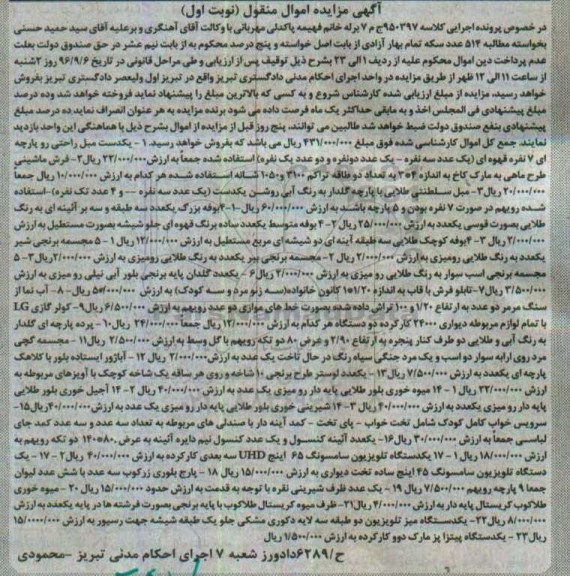 آگهی مزایده اموال منقول (نوبت اول)
در خصوص پرونده اجرایی کلاسه ۹۵۰۳۹۷ج م ۷ برله خانم فهیمه پاکدلی مهربانی با وکالت آقای آهنگری و برعلیه آقای سید حمید حسنی
بخواسته مطالبه ۵۱۴ عدد سکه تمام بهار آزادی از بابت اصل خواسته و پنج درصد محکوم به از بابت نیم عشر در حق صندوق دولت بعلت
عدم پرداخت دین اموال محکوم علیه از ردیف ۱ الی ۲۳ بشرح ذیل توقیف پس از ارزیابی و طی مراحل قانونی در تاریخ ۹۶/۹/۶ روز ۲شنبه
از ساعت ۱۱ الی ۱۲ ظهر از طریق مزایده در واحد اجرای احکام مدنی دادگستری تبریز واقع در تبریز اول ولیعصر دادگستری تبریز بفروش
خواهد رسید، مزایده از مبلغ ارزیابی شده کارشناس شروع و به کسی که بالاترین مبلغ را پیشنهاد نماید فروخته خواهد شد وده درصد
مبلغ پیشنهادی فی المجلس اخذ و به مابقی حداکثر یک ماه فرصت داده می شود برنده مزایده به هر عنوان انصراف نماید ده درصد مبلغ
پیشنهادی بنفع صندوق دولت ضبط خواهد شد طالبین می توانند، پنج روز قبل از مزایده از اموال بشرح ذیل با هماهنگی این واحد بازدید
نمایند. جمع کل اموال کارشناسی شده فوق مبلغ ۴۳۱/۰۰۰/۰۰۰ ریال می باشد که بفروش خواهد رسید. ۱ - یکدست مبل راحتی رو پارچه
ای ۷ نفره قهوه ای (یک عدد سه نفره - یک عدد دونفره و دو عدد یک نفره) استفاده شده جمعا به ارزش ۲۳/۰۰۰/۰۰۰ ریال ۲- فرش ماشینی
طرح ماهی به مارک کاخ به اندازه ۴*۳ به تعداد دو طاقه تراکم ۳۱۰۰ و ۱۰۵۰ شانه استفاده شده هر کدام به ارزش ۱۰/۰۰۰/۰۰۰ ریال جمعا
۲۰/۰۰۰/۰۰۰ ریال ۳- مبل سلطنتی طلایی با پارچه گلدار به رنگ آبی روشن یکدست (یک عدد سه نفره --- و ۴ عدد تک نفره) - استفاده
شده رویهم در صورت ۷ نفره بودن و ۵ پارچه باشد به ارزش ۶۰/۰۰۰/۰۰۰ ریال -۱-۴بوفه بزرگ یکعدد سه طبقه و سه بر آئینه ای به رنگ
طلایی بصورت قوسی یکعدد به ارزش ۲۵/۰۰۰/۰۰۰ ریال ۲-۴ بوفه متوسط یکعدد ساده برنگ قهوه ای جلو شیشه بصورت مستطیل به ارزش
۲/۰۰۰/۰۰۰ ریال ۳-۴بوفه کوچک طلایی سه طبقه آینه ای دو شیشه ای مربع مستطیل به ارزش ۱۲/۰۰۰/۰۰۰ ریال ۱-۵ مجسمه برنجی شیر
یکعدد به رنگ طلایی رومیزی به ارزش ۲/۰۰۰/۰۰۰ ریال ۲- مجسمه برنجی ببر یکعدد به رنگ طلایی رومیزی به ارزش ۲/۰۰۰/۰۰۰ ریال ۳-۵
مجسمه برنجی اسب سوار به رنگ طلایی رو میزی به ارزش ۲/۰۰۰/۰۰۰ ریال ۶ - یکعدد گلدان پایه برنجی بلور آبی نیلی رو میزی به ارزش
۳/۵۰۰/۰۰۰ ریال ۷-تابلو فرش با قاب به اندازه ۱/۲۰*۱ کانون خانواده(سه زنو مرد و سه کودک) به ارزش ۵۰/۰۰۰/۰۰۰ ریال - ۸ - آب نما از
سنگ مرمر دو عدد به ارتفاع ۱/۲۰ و ۱۰۰ تراش داده شده بصورت خط های موازی دو عدد رویهم به ارزش ۶/۵۰۰/۰۰۰ ریال ۹- کولر گازی LG
با تمام لوازم مربوطه دیواری ۲۴۰۰۰ کار کرده دو دستگاه هر کدام به ارزش ۱۲/۰۰۰/۰۰۰ ریال جمعاً ۲۴/۰۰۰/۰۰۰ ریال ۱۰- پرده پارچه ای گلدار
به رنگ آبی و طلایی دو طرف کنار پنجره به ارتفاع ۲/۹۰ و عرض ۸۰ دو تکه رویهم با گل وسط به ارزش ۲/۵۰۰/۰۰۰ ریال ۱۱- مجسمه گچی
مرد روی ارابه سوار دو اسب و یک مرد جنگی سیاه رنگ در حال تاخت یک عدد به ارزش ۲/۰۰۰/۰۰۰ ریال ۱۲ - آباژور ایستاده بلور با کلاهک
پارچه ای یکعدد به ارزش ۷/۵۰۰/۰۰۰ ریال ۱۳- یکعدد لوستر طرح برنجی ۱۰ شاخه و روی هر ساقه یک شاخه کوچک با آویزهای مربوطه به
ارزش ۲۲/۰۰۰/۰۰۰ ریال ۱-۱۴ میوه خوری بلور طلایی پایه دار رو میزی یک عدد به ارزش ۴۰/۰۰۰/۰۰۰ ریال ۲-۱۴ آجیل خوری بلور طلایی
پایه دار رو میزی یکعدد به ارزش ۴۰/۰۰۰/۰۰۰ ریال ۳-۱۴ شیرینی خوری بلور طلایی پایه دار رو میزی یک عدد به ارزش ۴۰/۰۰۰/۰۰۰ ریال ۱۵-
سرویس خواب کامل کودک شامل تخت خواب - پای تخت - کمد آینه دار با صندلی های مربوطه به تعداد سه عدد و سه عدد کمد جای
لباسی جمعا به ارزش ۳۰/۰۰۰/۰۰۰ ریال ۱۶- یکعدد آئینه کنسول و یک عدد کنسول نیم دایره آئینه به عرض ۸۰*۱۴۰ دو تکه رویهم به
ارزش ۱۸/۰۰۰/۰۰۰ ریال ۱-۱۷ یکدستگاه تلویزیون سامسونگ ۶۵ اینچ UHD سه بعدی کارکرده به ارزش ۴۰/۰۰۰/۰۰۰ ریال ۲-۱۷ - یک
دستگاه تلویزیون سامسونگ ۴۵ اینچ ساده تخت دیواری به ارزش ۱۵/۰۰۰/۰۰۰ ریال ۱۸ - پارچ بلوری زرکوب سه عدد با شش عدد لیوان
جمعا ۹ پارچه رویهم ۷/۵۰۰/۰۰۰ ریال ۱۹ - یک عدد ظرف شیرینی نقره با توجه به قدمت به ارزش حدود ۱۵/۰۰۰/۰۰۰ ریال ۲۰ - میوه خوری
طلاکوب کریستال پایه دار به ارزش ۴/۰۰۰/۰۰۰ ریال ۲۱- ظرف میوه کریستال طلاکوب با پایه برنجی بصورت فرشته ها در پایه یکعدد به ارزش
۸/۰۰۰/۰۰۰ ریال ۲۲- یکدستگاه میز تلویزیون دو طبقه سه لایه دکوری مشکی جلو یک طبقه شیشه جهت رسیور به ارزش ۱۵/۰۰۰/۰۰۰
ریال ۲۳ - یکدستگاه پیتزا پز مارک دوو کارکرده به ارزش ۱/۵۰۰/۰۰۰ ریال
ح/۶۲۸۹دادورز شعبه ۷ اجرای احکام مدنی تبریز -محمودی